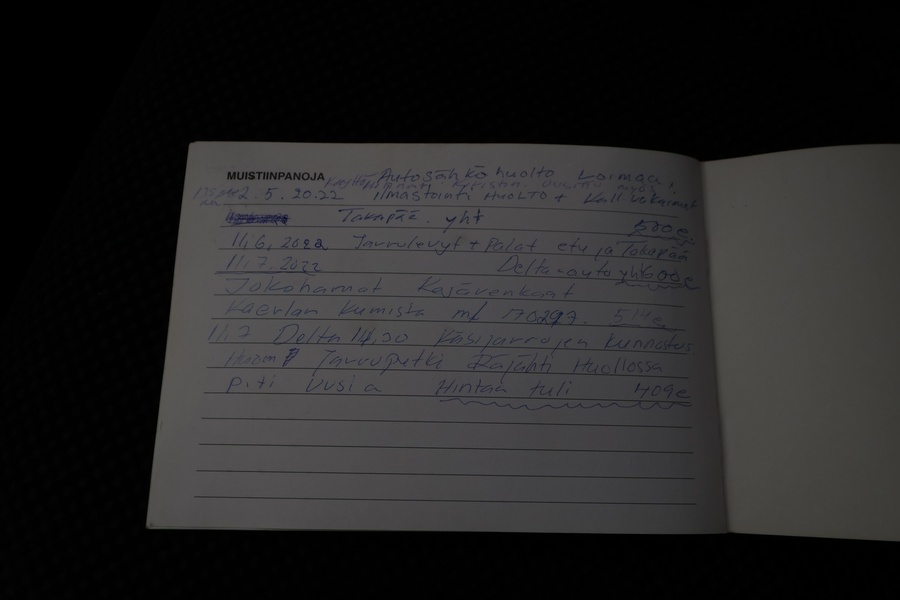 MUISTIINPANOJA Autosähkö huolto Loimaa
2.5.2022 ilmastointi HUOLTO +
Takapää. yht 500e
11.6.2022 Jarrulevyt + Palat etu ja Takapää
11.7.2022 Delta-auto yht 600e
Jokohamat Kesärenkaat
Kaerlan Kumista ml 70297. 514e
11.7 Delta 14,00 Käsijarrujen kunnostus
Huom Jarruputki Räjähti Huollossa
piti uusia Hintaa tuli 409e